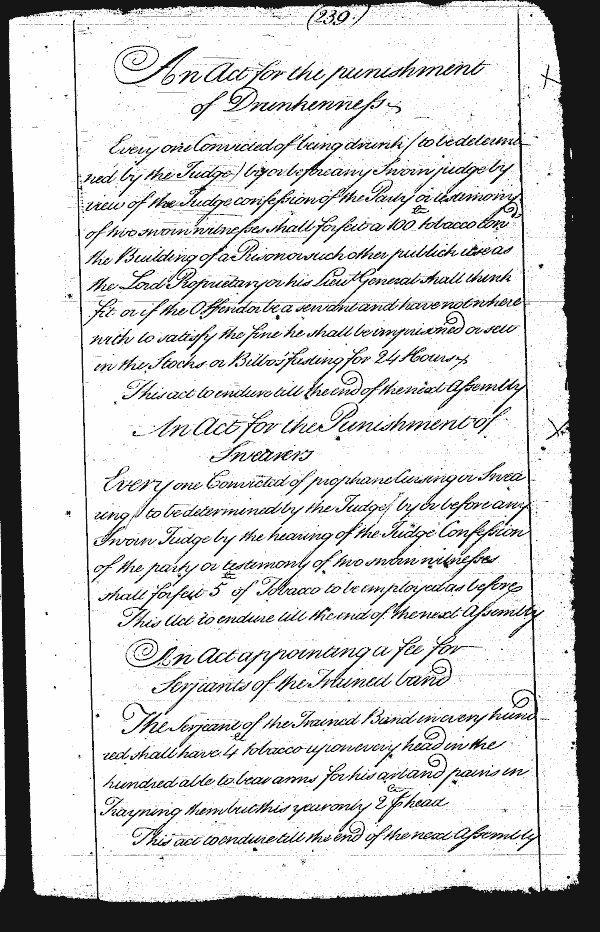 (239.)
An Act for the punishment
of Drunkenness
Every one Convicted of being drunk (to be determi-
ned by the Judge) by or before any Sworn judge by
view of the Judge confession of the Party or testimony
of two sworn witnesses shall forfeit a 100 lb tobacco tow
the Building of a Prison or such other publick use as
the Lord Proprietary or his Lieut General shall think
fit or if the Offendor be a servant and have not where
with to satisfy the fine he shall be imprisoned or sett
in the Stocks or Bilbos fasting for 24 Hours
This act to endure till the end of the next Assembly
An Act for the Punishment of
Swearers
Every one Convicted of prophane Cursing or Swea
ring to be determined by the Judge) by or before any
Sworn Judge by the hearing of the Judge Confession
of the party or testimony of two sworn witnesses
shall forfeit 5 lb of Tobacco to be employed as before
This Act to endure till the end of the next Assembly
An Act appointing a fee for
Serjeants of the Trained band
The Serjeant of the Trained Band in every hund
red shall have 4 lb tobacco upon every head in the
hundred able to bear arms for his art and pains in
Trayning them but this year only 2 lb head
This act to endure till the end of the next Assembly